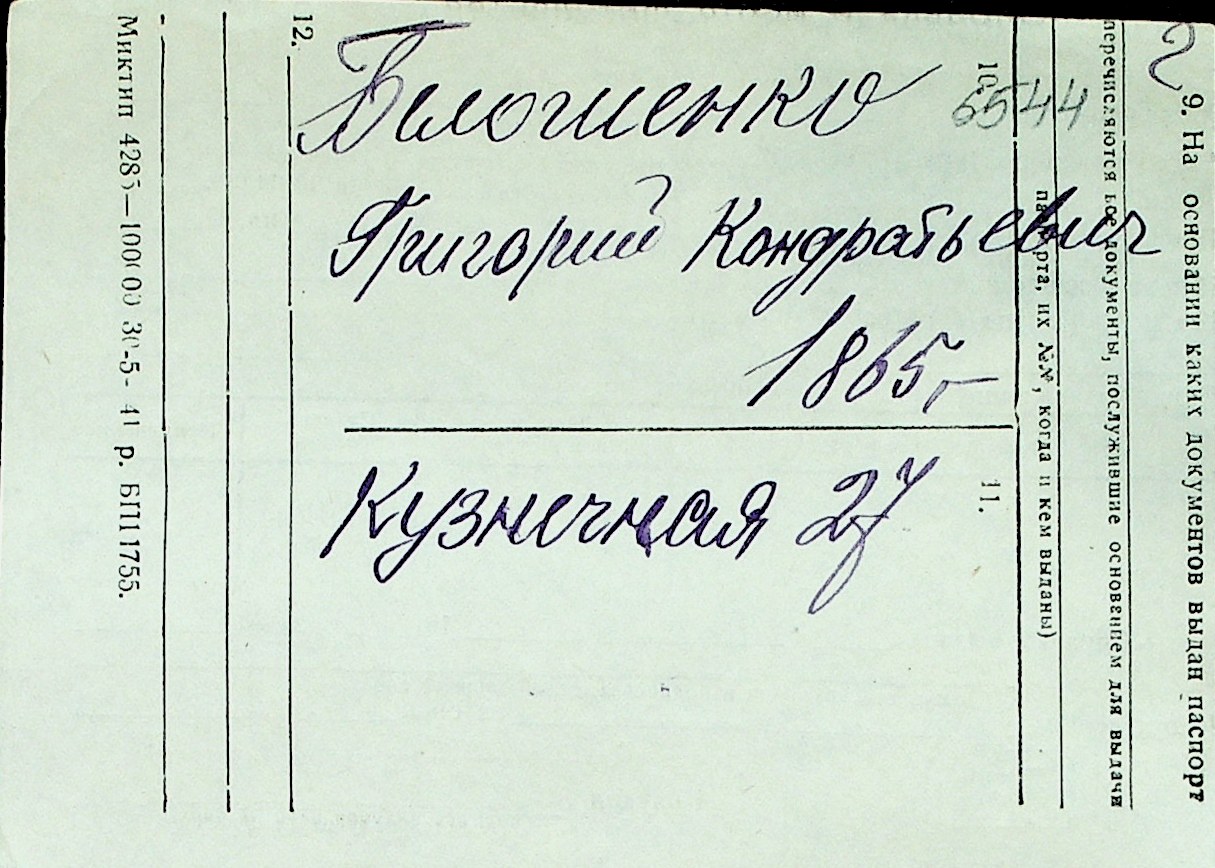 6544
Григорий Кондратьевич
1865,–
Кузнечная 27
9. На основании каких документов выдан паспорт
перечисляются все документы, послужившие основением для выдачи
паспорта, их №№, когда и кем выданы)
10.
11.
12.
Миктип 4285—100000 30-5- 41 р. БП11755.